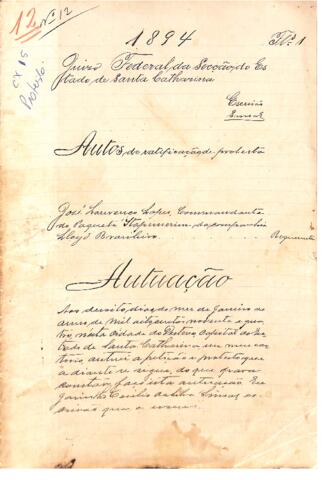 12 Nº 12
CX 15
Protesto
1894 Fl. 1
Juizo Federal da Secção do Es
tado de Santa Catharina
Escrivão
Autos de ratificação de protesto
José Lourenço Lopes, Commandante
do Paquete Itapemerim, da companhia
Lloyd Brasileiro Requerente
Autuação
Aos dezoito dias do mez de Janeiro do
anno de mil oitocentos noventa e qua
tro, nesta cidade do Desterro capital do Es
tado de Santa Catharina em meu car
torio autuei a petição e protesto que
a diante se segue, do que para
constar, faço esta autuação. Eu